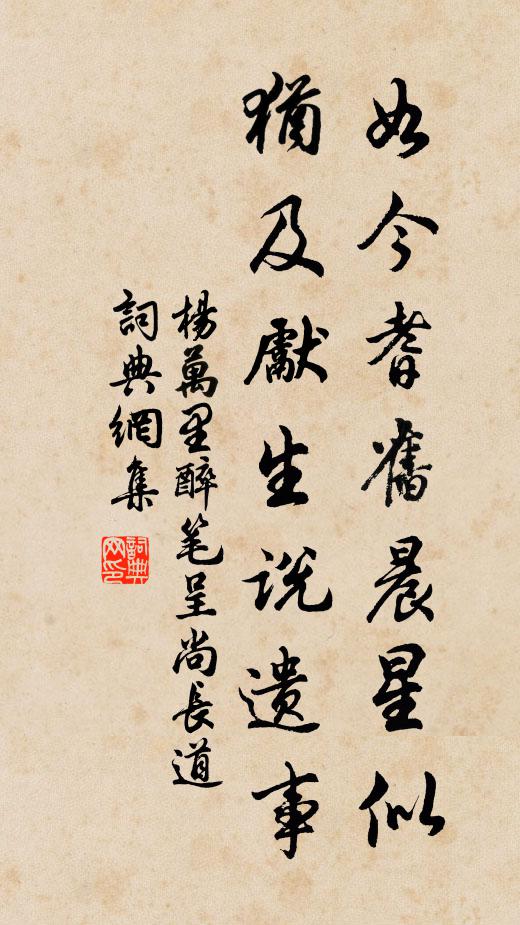 如今耆舊晨星似
猶及獻生説遺事
楊萬里醉笔呈尚長道
詞典網集
詞典网印